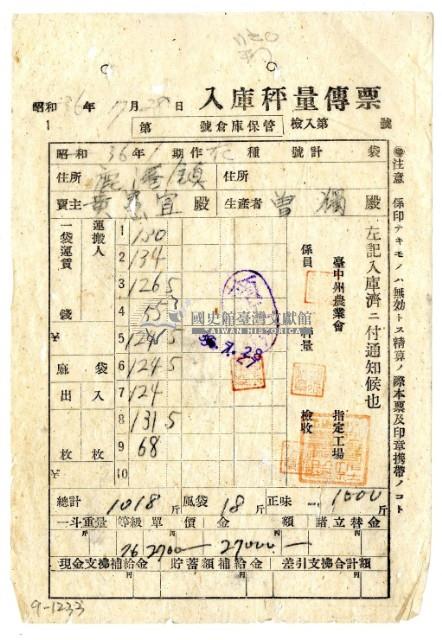 入庫秤量傳票
昭和36年7月28日
1 第 號倉庫保管 檢入第 號
昭和36年1期作 種 號計 袋
住所 鹿港鎮 住所
賣主 黃 宜 殿 生產者 曾 殿
㊟注意 係印ナキモノハ無効トス精算ノ際本票及印章携帶ノコト
左記入庫濟ニ付通知候也
臺中州農業會
係員
秤量
指定工場
檢收
運搬人
一袋運賃
錢
麻袋
出 入
枚 枚
1 130
2 134
3 1265
4
5 1245
6 1245
7 124
8 1315
9 68
10
國史館臺灣文獻館
TAIWAN HISTORICA
36.7.28
總計 1018斤 風袋 18斤 正味 1000斤
一斗重量 等級 單價 金額 諸立替金
2700 27000
現金支拂補給金 貯蓄額補給金 差引支拂合計額
9-1233